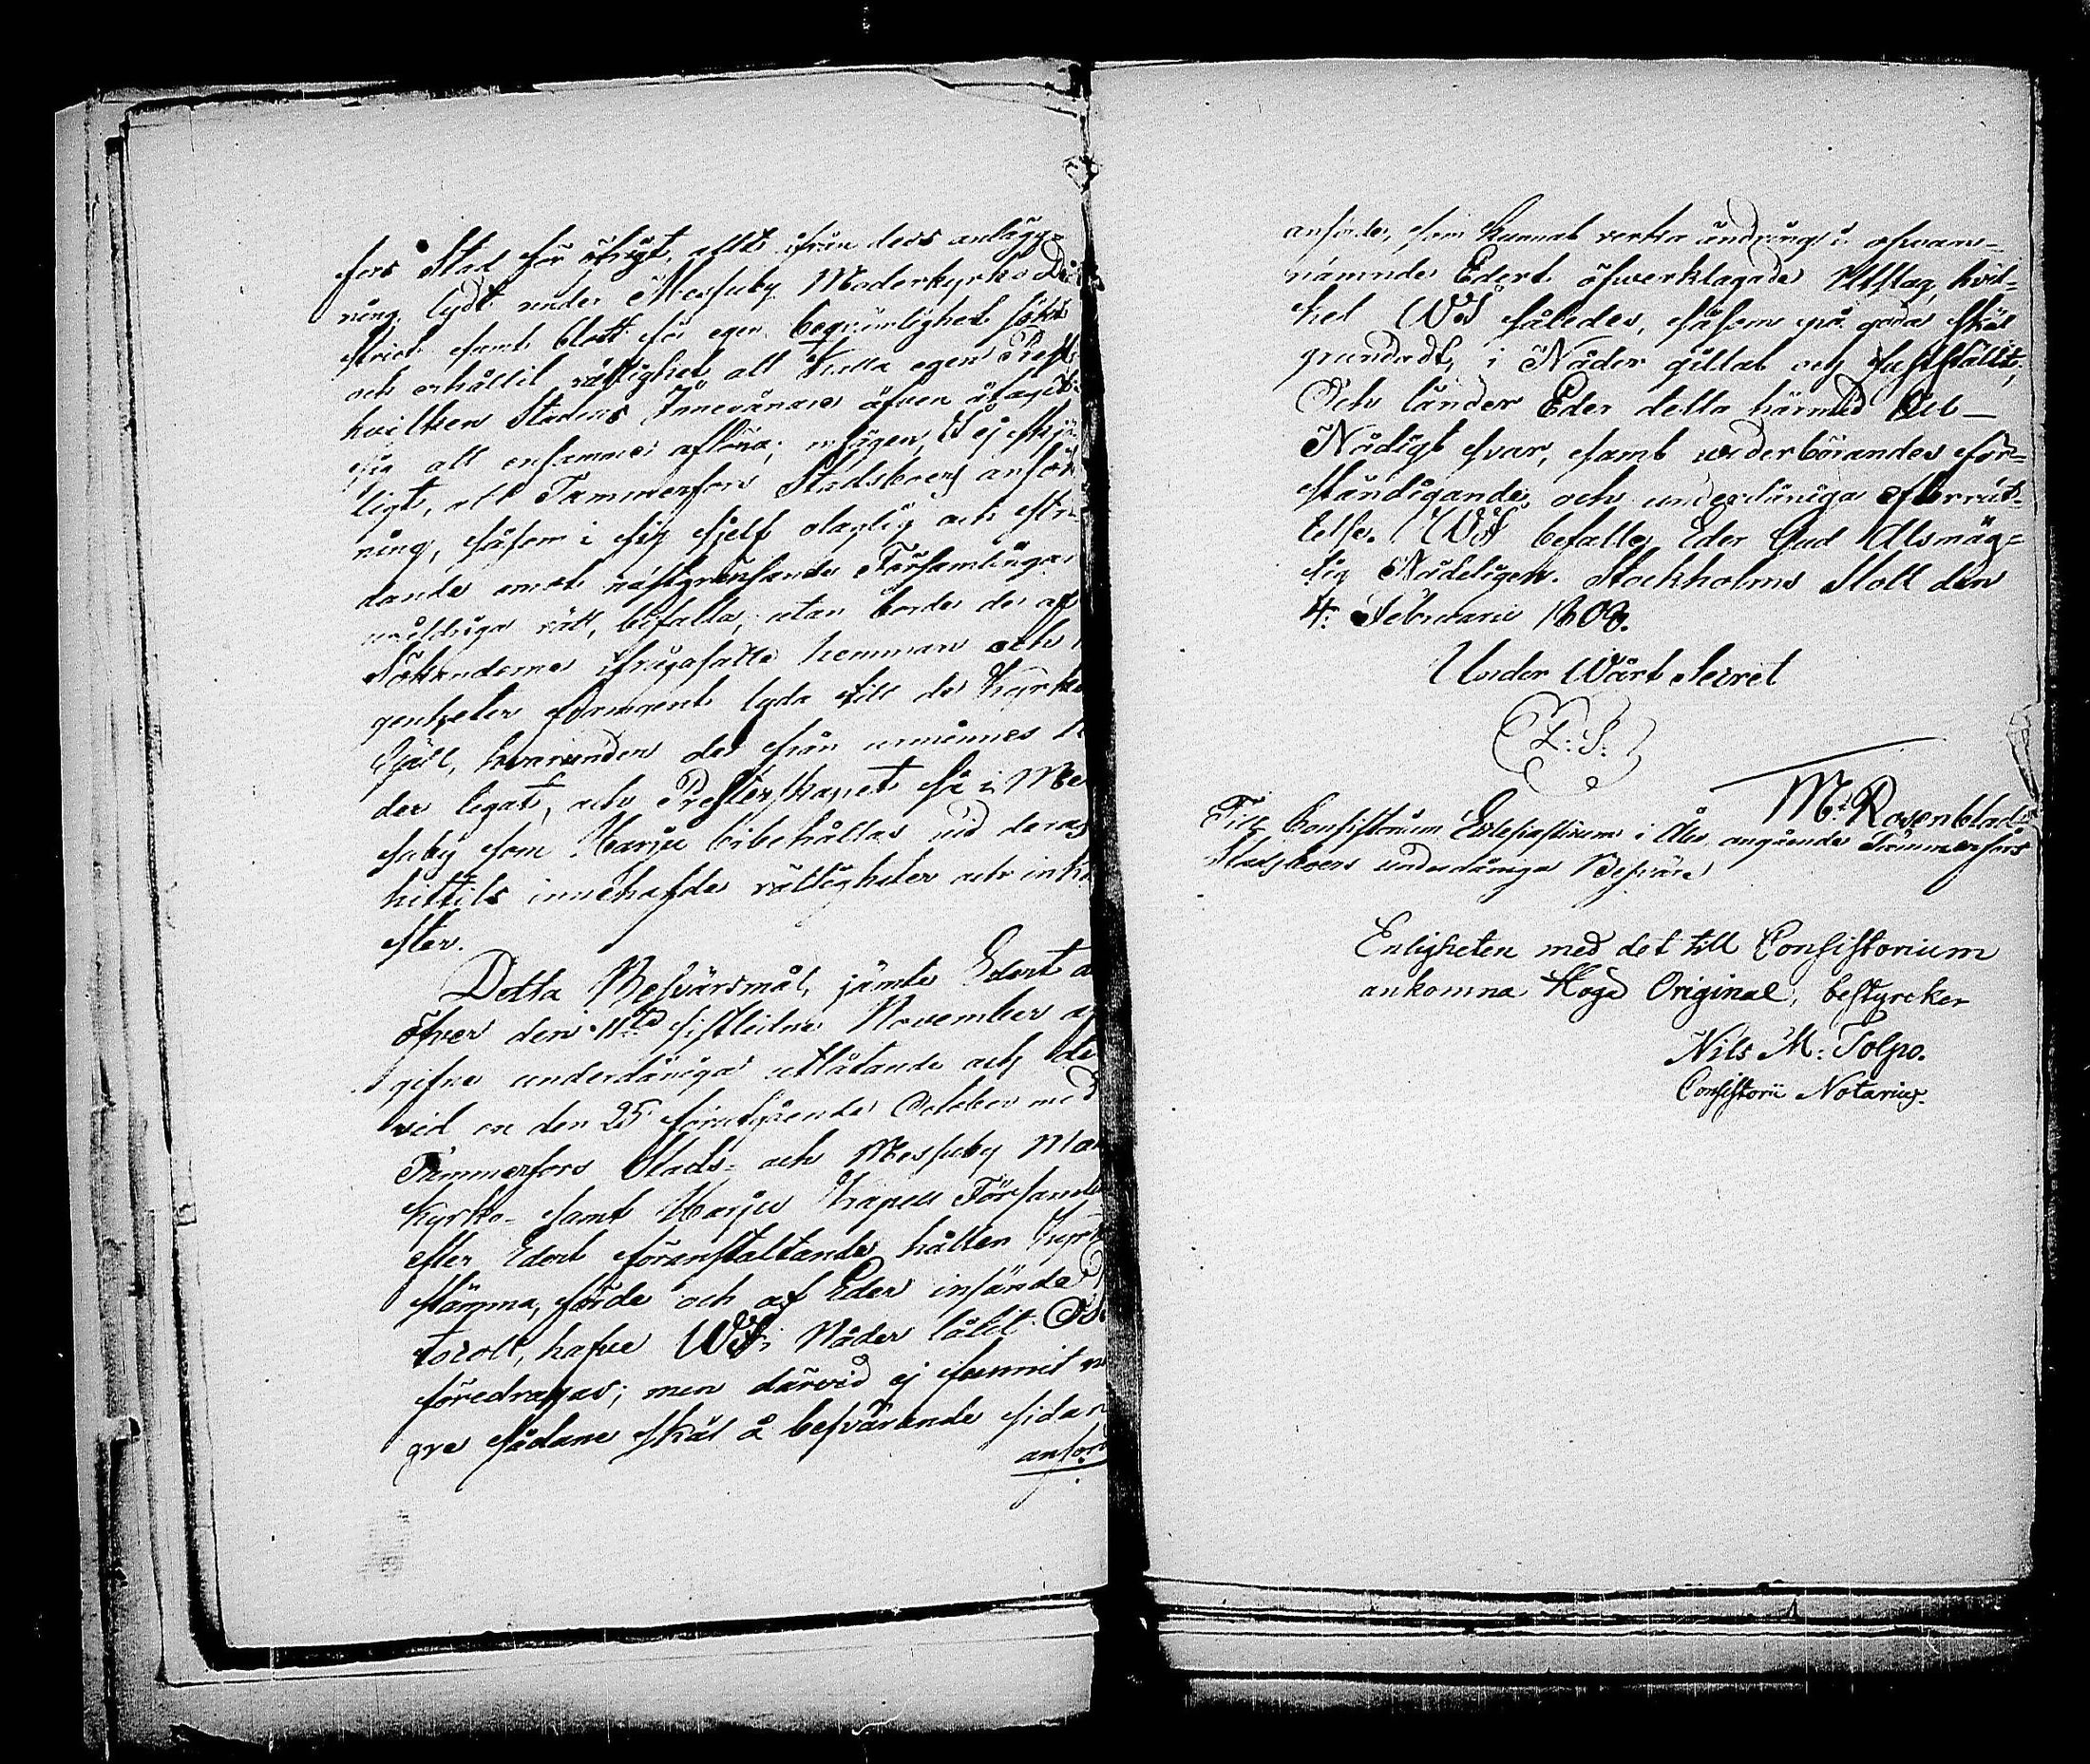 fors Stad för öfrigt, allt ifrån dess anlägg-
ning lydt under Messuby Moderkyrko Di-
strict samt blott för egen beqvämlighet sökt
och erhållit rättighet att hålla egen Prest
hvilken Stadens Innevånare äfven åtagit
sig att ensamme aflöna; mågen, I ej skjä-
ligt, att Tammerfors Stadsboers anfor-
ning, såsom i sig sjelf olaglig och stri-
dande emot näst gränsande Församlingar
måldriga rätt, bifalla, utan borde de af
Sökanderne ifrågasatte hemman och
genheter framgent lyda till de Kyrko
Gäll, hvarunder de från urminnes ti
der legat, och Presterskapet så i Me
suby som Harju bibehållas vid deras
hittils innehafde rättigheter och inko
ster.
Detta Besvärsmål, jämte Edert d
öfver den 11te sistledne November af
gifne underdåniga utlåtande och de
vid en den 25 föregående October med
Tammerfors Stads- och Messuby Mo
Kyrko- samt Harju Kapell Församl
efter Edert föranstaltande hållen Kyrk
stämma, förde och af Eder insände
tocoll, hafve WJ i Nåder låtit Oss
föredragas; men därvid ej funnit n
gre sådane skäl å besvärande sidan
anför
anförde, som kunnat verka ändring i ofvan-
nämnde Edert öfverklagade Utslag, hvil-
ket WJ således, såsom på goda skäl
grundadt, i Nåder gillat och fastställt;
Och länder Eder detta härmed till
Nådigt svar, samt wederbörandes för-
ständigande och underdåniga efterrät-
telse. WJ befalle Eder Gud Alsmäg-
tig Nådeligen. Stockholms Slott den
4: Februarii 1808.
Under Wårt Secret
L: S:
M: Rosenblad
Till Consistorium Ecclesiasticum i Åbo angående Tammerfors
Stadsboers underdåniga Besvär
Enligheten med det till Consistorium
ankomna Höga Original, bestyrcker
Nils M: Tolpo.
Consistorii Notarius.